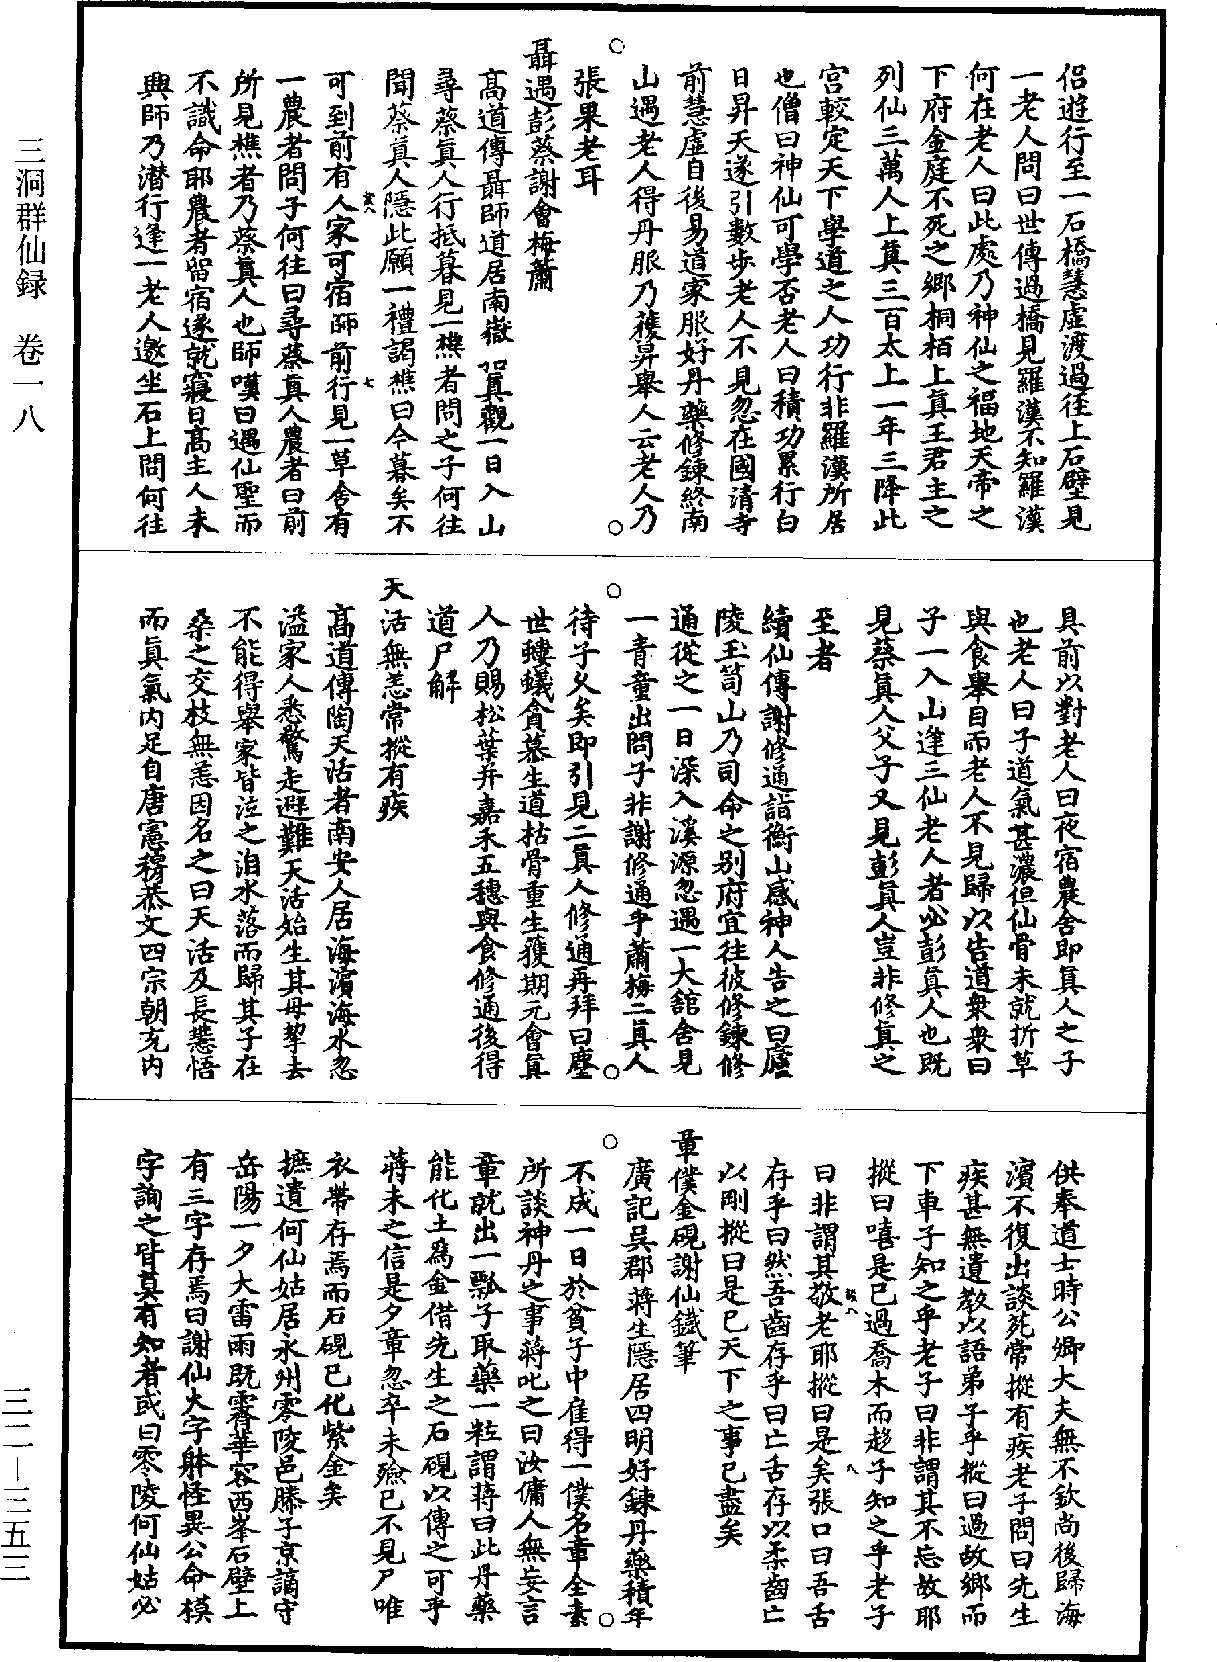 三洞群仙録　卷一八
三二—三五三
侣遊行至一石橋慧虛渡過徑上石壁見
一老人問曰世傳過橋見羅漢不知羅漢
何在老人曰此處乃神仙之福地天帝之
下府金庭不死之鄉桐栢上真王君主之
列仙三萬人上真三百太上一年三降此
宫較定天下學道之人功行非羅漢所居
也僧曰神仙可學否老人曰積功累行白
日昇天遂引數步老人不見忽在國清寺
前慧虛自後易道家服好丹藥修鍊終南
山遇老人得丹服乃獲昇舉人云老人乃
張果老耳
聶遇彭蔡謝會梅蕭
高道傳聶師道居南嶽招真觀一日入山
尋蔡真人行抵暮見一樵者問之子何往
聞蔡真人隱此願一禮謁樵曰今暮矣不
可到前有人家可宿師前行見一草舍有
一農者問子何往曰尋蔡真人農者曰前
所見樵者乃蔡真人也師嘆曰遇仙聖而
不識命耶農者留宿遂就寢日高主人未
興師乃潛行逢一老人邀坐石上問何往
具前以對老人曰夜宿農舍即真人之子
也老人曰子道氣甚濃但仙骨未就折草
與食舉目而老人不見歸以告道衆衆曰
子一入山逢三仙老人者必彭真人也既
見蔡真人父子又見彭真人豈非修真之
至者
續仙傳謝修通詣衡山感神人告之曰廬
陵玉笥山乃司命之别府宜往彼修鍊修
通從之一日深入溪源忽遇一大舘舍見
一青童出問子非謝修通乎蕭梅二真人
待子乆矣即引見二真人修通再拜曰塵
世螻蟻貪慕生道枯骨重生獲期元會真
人乃賜松葉并嘉禾五穗與食修通後得
道尸解
天活無恙常樅有疾
高道傳陶天活者南安人居海濵海水忽
溢家人悉驚走避難天活始生其母挈去
不能得舉家皆泣之洎水落而歸其子在
桑之交枝無恙因名之曰天活及長慧悟
而真氣内足自唐憲穆恭文四宗朝充内
供奉道士時公卿大夫無不欽尚後歸海
濵不復出談死常樅有疾老子問曰先生
疾甚無遺教以語弟子乎樅曰過故鄉而
下車子知之乎老子曰非謂其不忘故耶
樅曰嘻是已過喬木而趍子知之乎老子
曰非謂其敬老耶樅曰是矣張口曰吾舌
存乎曰然吾齒存乎曰亡舌存以柔齒亡
以剛樅曰是已天下之事已盡矣
章僕金硯謝仙鐵筆
廣記吳郡蔣生隱居四明好鍊丹藥積年
不成一日於貧子中雇得一僕名章全素
所談神丹之事蔣叱之曰汝傭人無妄言
章就出一瓢子取藥一粒謂蔣曰此丹藥
能化土爲金借先生之石硯以傳之可乎
蔣未之信是夕章忽卒未殮已不見尸唯
衣帶存焉而石硯已化紫金矣
摭遺何仙姑居永州零陵邑滕子京謫守
岳陽一夕大雷雨既霽華容西峯石壁上
有三字存焉曰謝仙火字躰怪異公命模
字詢之皆莫有知者或曰零陵何仙姑必